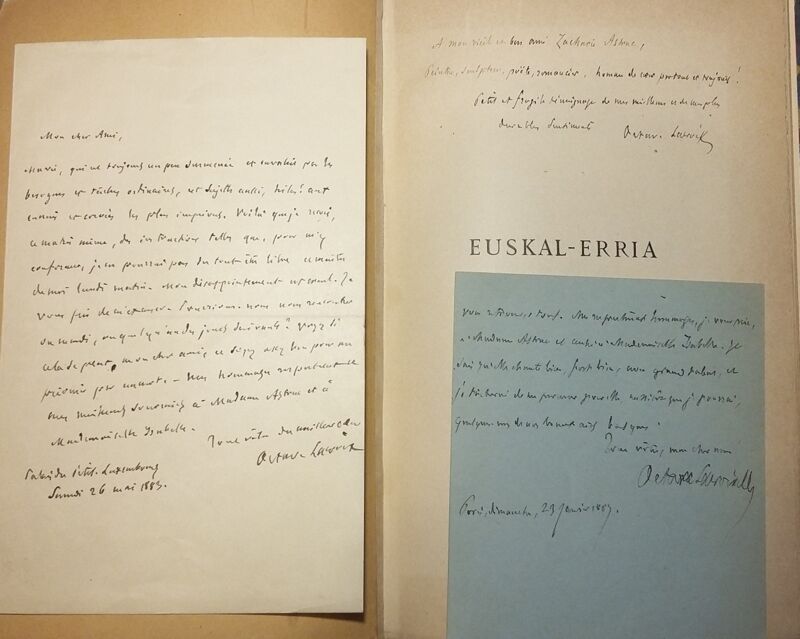 Mon cher Ami,
Marié, qui est toujours un peu surmené et envahie par les
besognes et tâches ordinaires, est sujette aussi, hélas! aux
ennuis et corvées les plus imprévus. Voilà que je reçois,
ce matin même, des instructions telles que, pour m'y
conformer, je ne pourrai pas du tout être libre
lundi matin. Mon désappointement est cruel. Je
vous prie de m'excuser. Pourrions-nous nous rencontrer
ou mardi, ou quelqu'un des jours suivants? Voyez si
cela se peut, mon cher ami, et soyez assez bon pour me
prévenir par un mot. — Mes hommages respectueux et
mes meilleurs souvenirs à Madame Astruc et à
Mademoiselle Isabelle.
Tout vôtre du meilleur cœur
Octave Lacroix
Palais du Petit-Luxembourg
Samedi 26 mai 1883.
A mon vieil et bon ami Zacharie Astruc,
Peintre, sculpteur, poète, romancier, homme de cœur partout et toujours!
Petit et fragile témoignage de mes meilleurs et de mes plus
durables sentiments
Octave Lacroix
EUSKAL-ERRIA
Mes respectueux hommages, je vous prie,
à Madame Astruc et aussi à Mademoiselle Isabelle. Je
sais qu'elle chante bien, fort bien, avec grand talent, et
je tâcherai de me procurer pour elle, aussitôt que je pourrai,
quelques-uns de nos beaux airs basques.
Tout vôtre, mon cher ami
Octave Lacroix
Paris, dimanche, 23 janvier 1887.